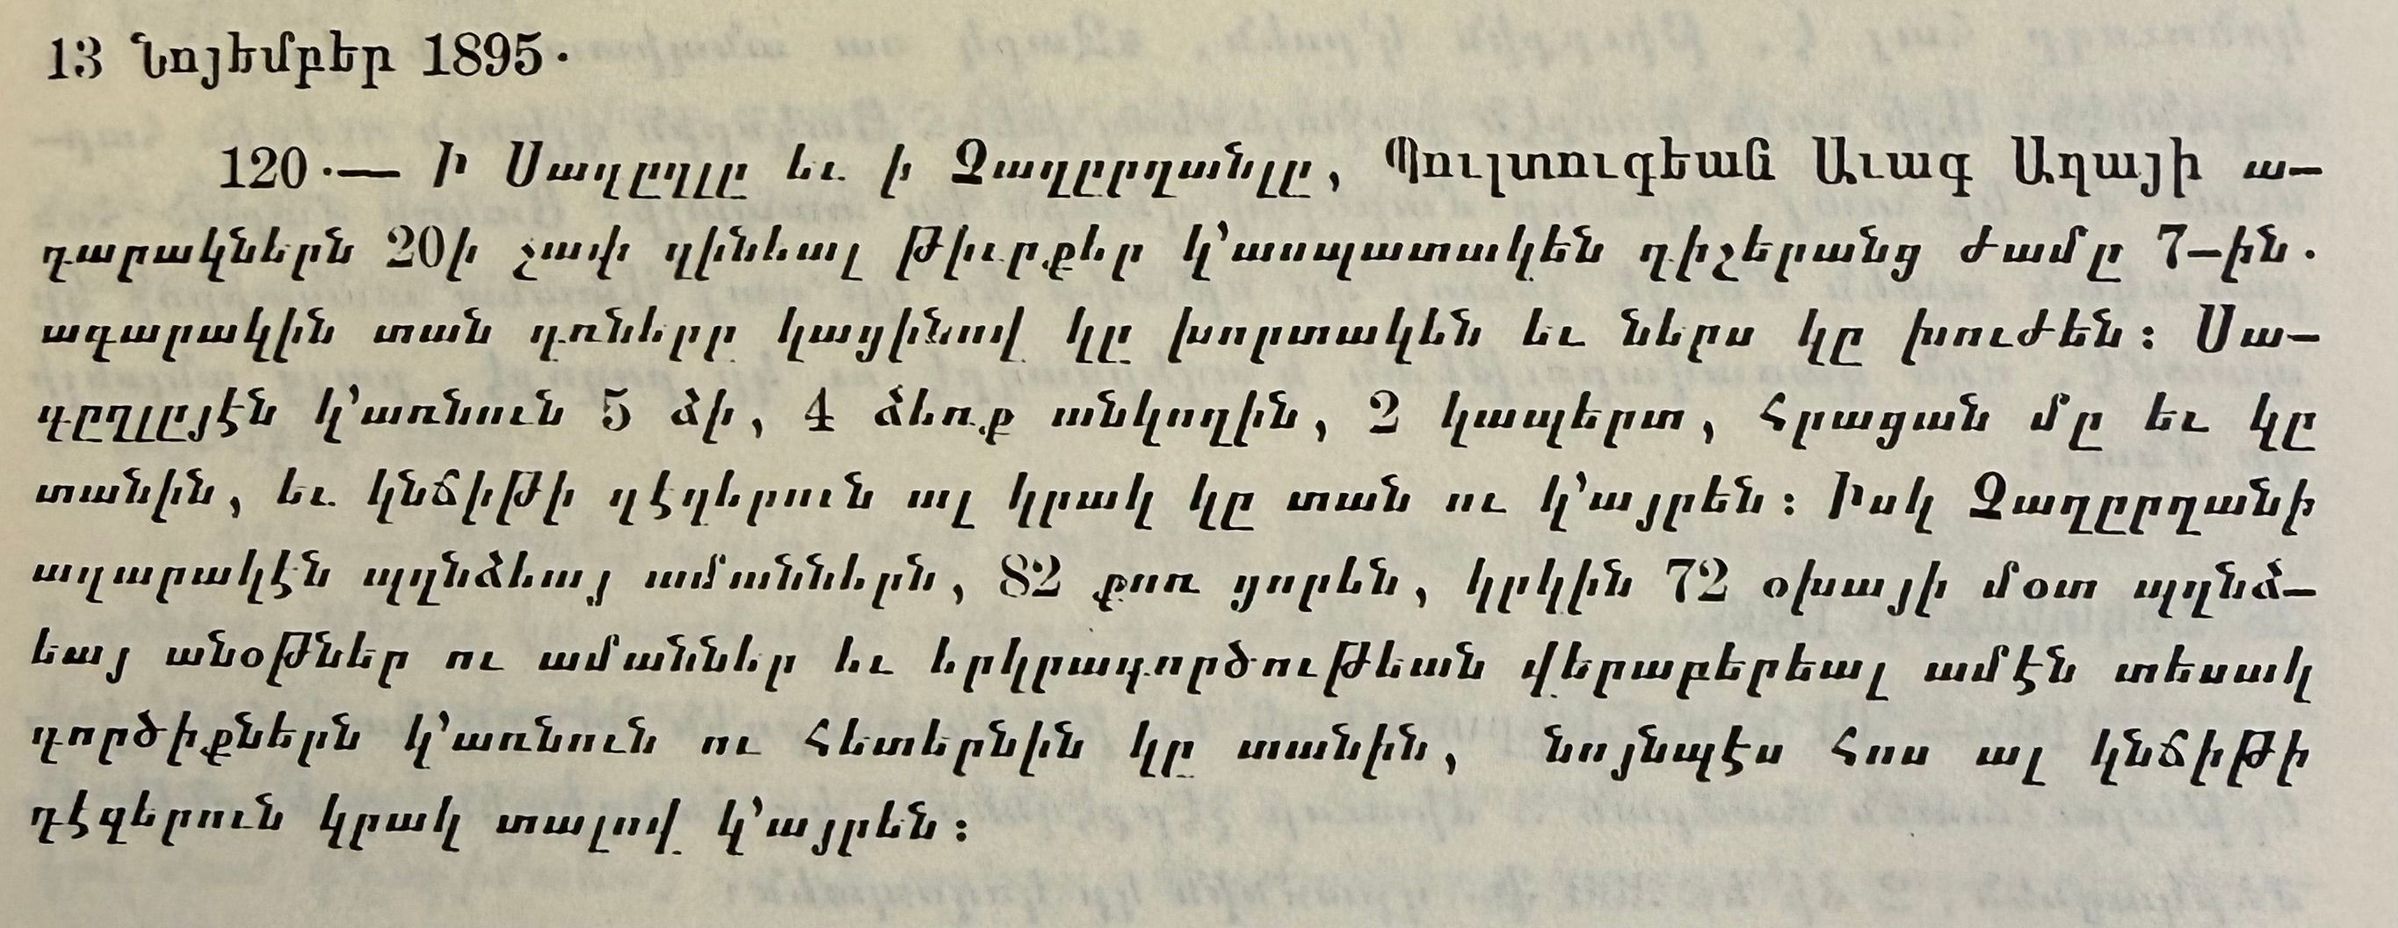 13 նոյեմբեր 1895.
120.— Ի Սադըղլը եւ ի Չաղըրղանլը, Պուլտուգեան Աւագ Աղայի ա-
գարակներն 20ի չափ զինեալ թիւրքեր կ՚ասպատակեն գիշերանց ժամը 7-ին.
ագարակին տան դռները կացինով կը խորտակեն եւ ներս կը խուժեն։ Սա-
դըղլըյէն կ՚առնուն 5 ձի, 4 ձեռք անկողին, 2 կապերտ, հրացան մը եւ կը
տանին, եւ կնճիթի դէզերուն ալ կրակ կը տան ու կ՚այրեն։ Իսկ Չաղըրղանի
ագարակէն պղնձեայ ամաններն, 82 քոռ ցորեն, կրկին 72 օխայի մօտ պղնձ-
եայ անօթներ ու ամաններ եւ երկրագործութեան վերաբերեալ ամէն տեսակ
գործիքներն կ՚առնուն ու հետերնին կը տանին, նոյնպէս հոս ալ կնճիթի
դէզերուն կրակ տալով կ՚այրեն։